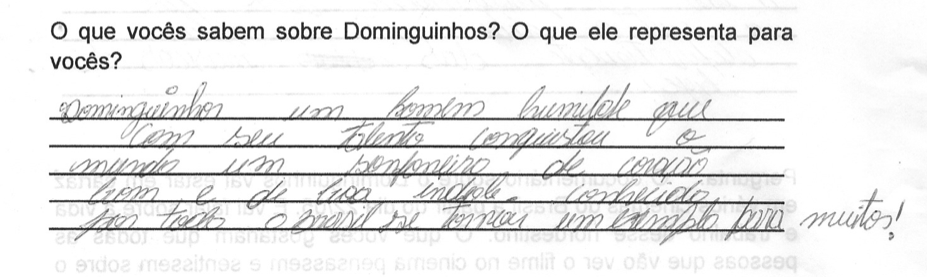 O que vocês sabem sobre Dominguinhos? O que ele representa para
vocês?
Dominguinhos um homem humilde que
com seu talento conquistou o
mundo um sonfoneiro de coração
bom e de boa indole conhecido
por todo o brasil se tornou um exemplo para muitos!